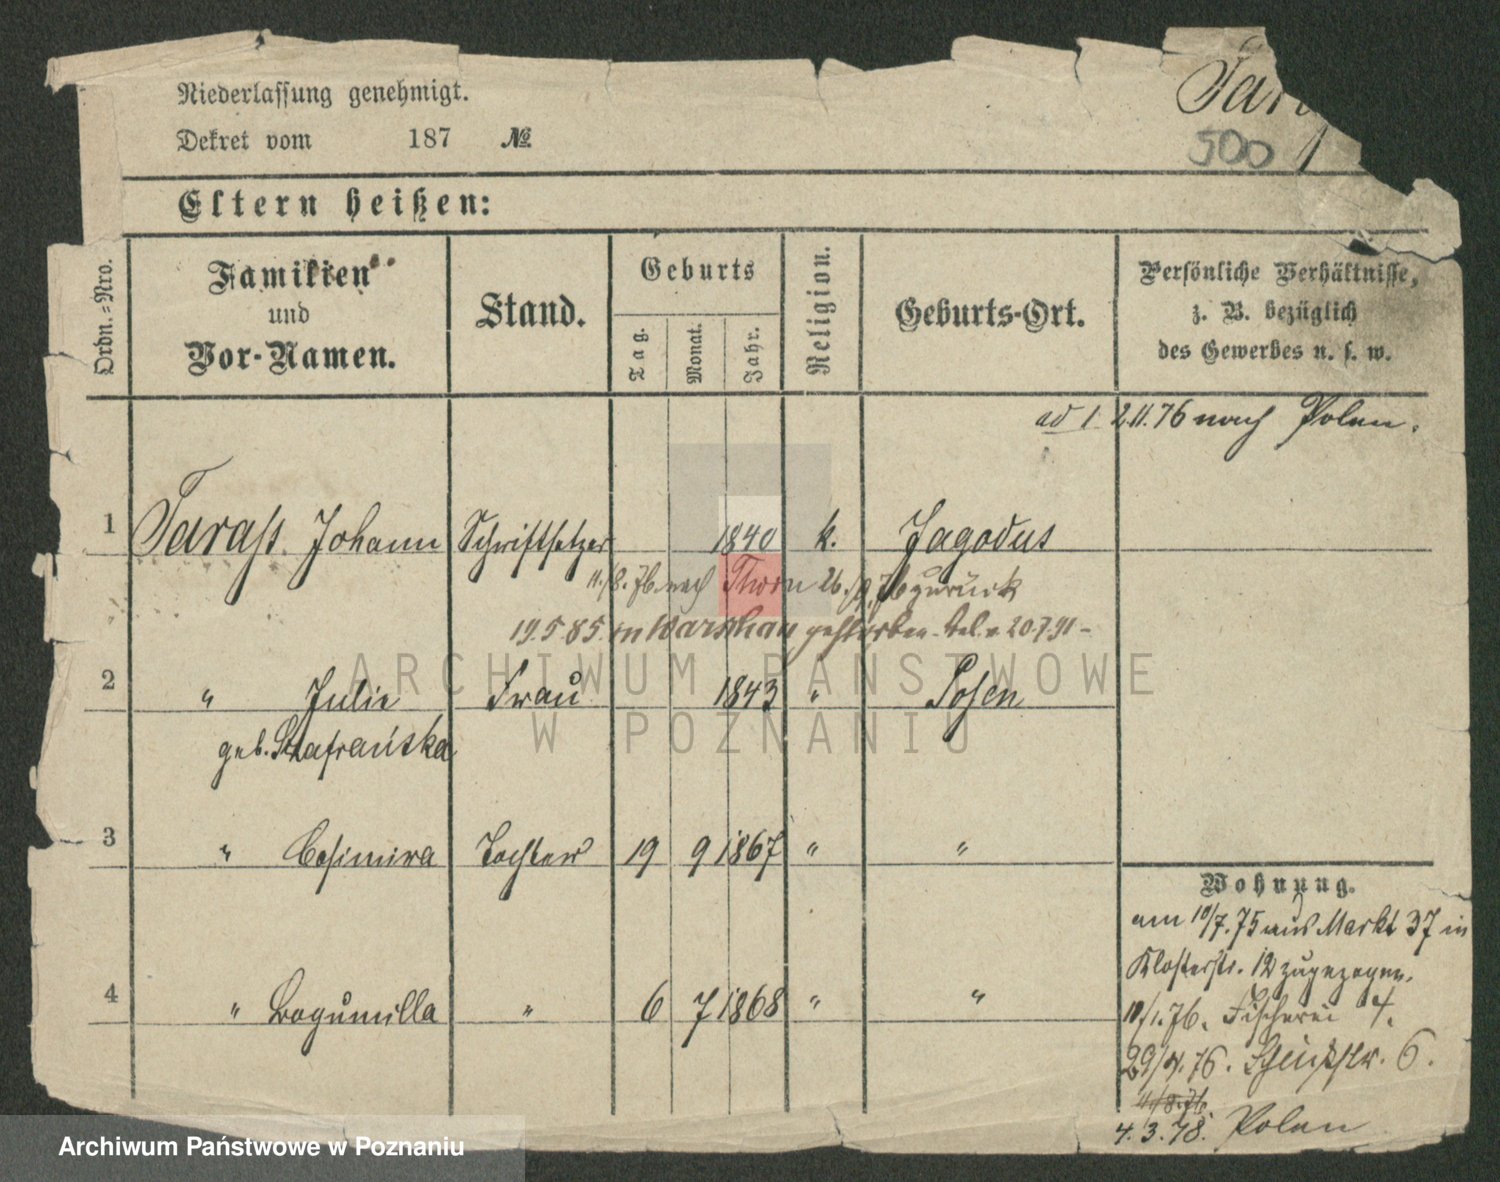 Niederlassung genehmigt.
Dekret vom 187 №
500
Eltern heißen:
Ordn.-Nro.
Familien
und
Vor-Namen.
Stand.
Geburts
Tag.
Monat.
Jahr.
Religion.
Geburts-Ort.
Persönliche Verhältnisse,
z. B. bezüglich
des Gewerbes u. s. w.
ad 1 2.11.76 nach Polen.
1 Tarass Johann Schriftsetzer 1840 k. Jagodus
11./8. 76 nach Thorn 26./9. 76 zurück
19.5.85 in Warschau gestorben 20.7.91 -
2 " Julie Frau 1843 " Posen
geb. Szafrańska
3 " Casimira Tochter 19 9 1867 " "
4 " Bogumilla " 6 7 1868 " "
Wohnung.
am 10/7.75 aus Markt 37 in
Klosterstr. 12 zugezogen.
10/1.76. Fischerei 4.
29/4.76. 6.
4/8.76.
4.3.78. Polen
ARCHIWUM PAŃSTWOWE
W POZNANIU
Archiwum Państwowe w Poznaniu